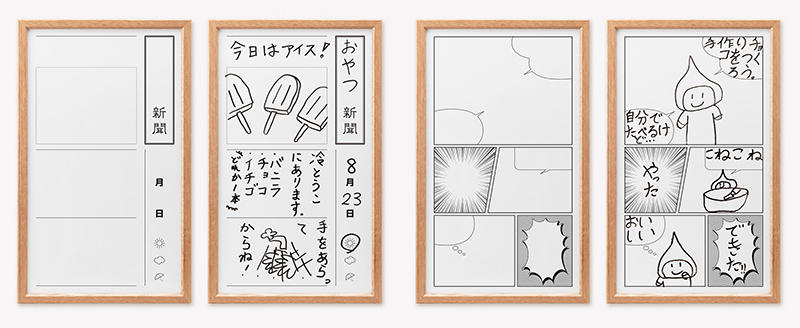 新聞
月
日
おやつ 新聞
今日はアイス!
8月
23日
冷とうこ
にあります。
・バニラ
・チョコ
・イチゴ
どれか1本
手をあらっ
て
からね!
手作りチョ
コをつく
ろう。
自分で
たべるけ
ど…
やった
こねこね
おい
しい
できた!!